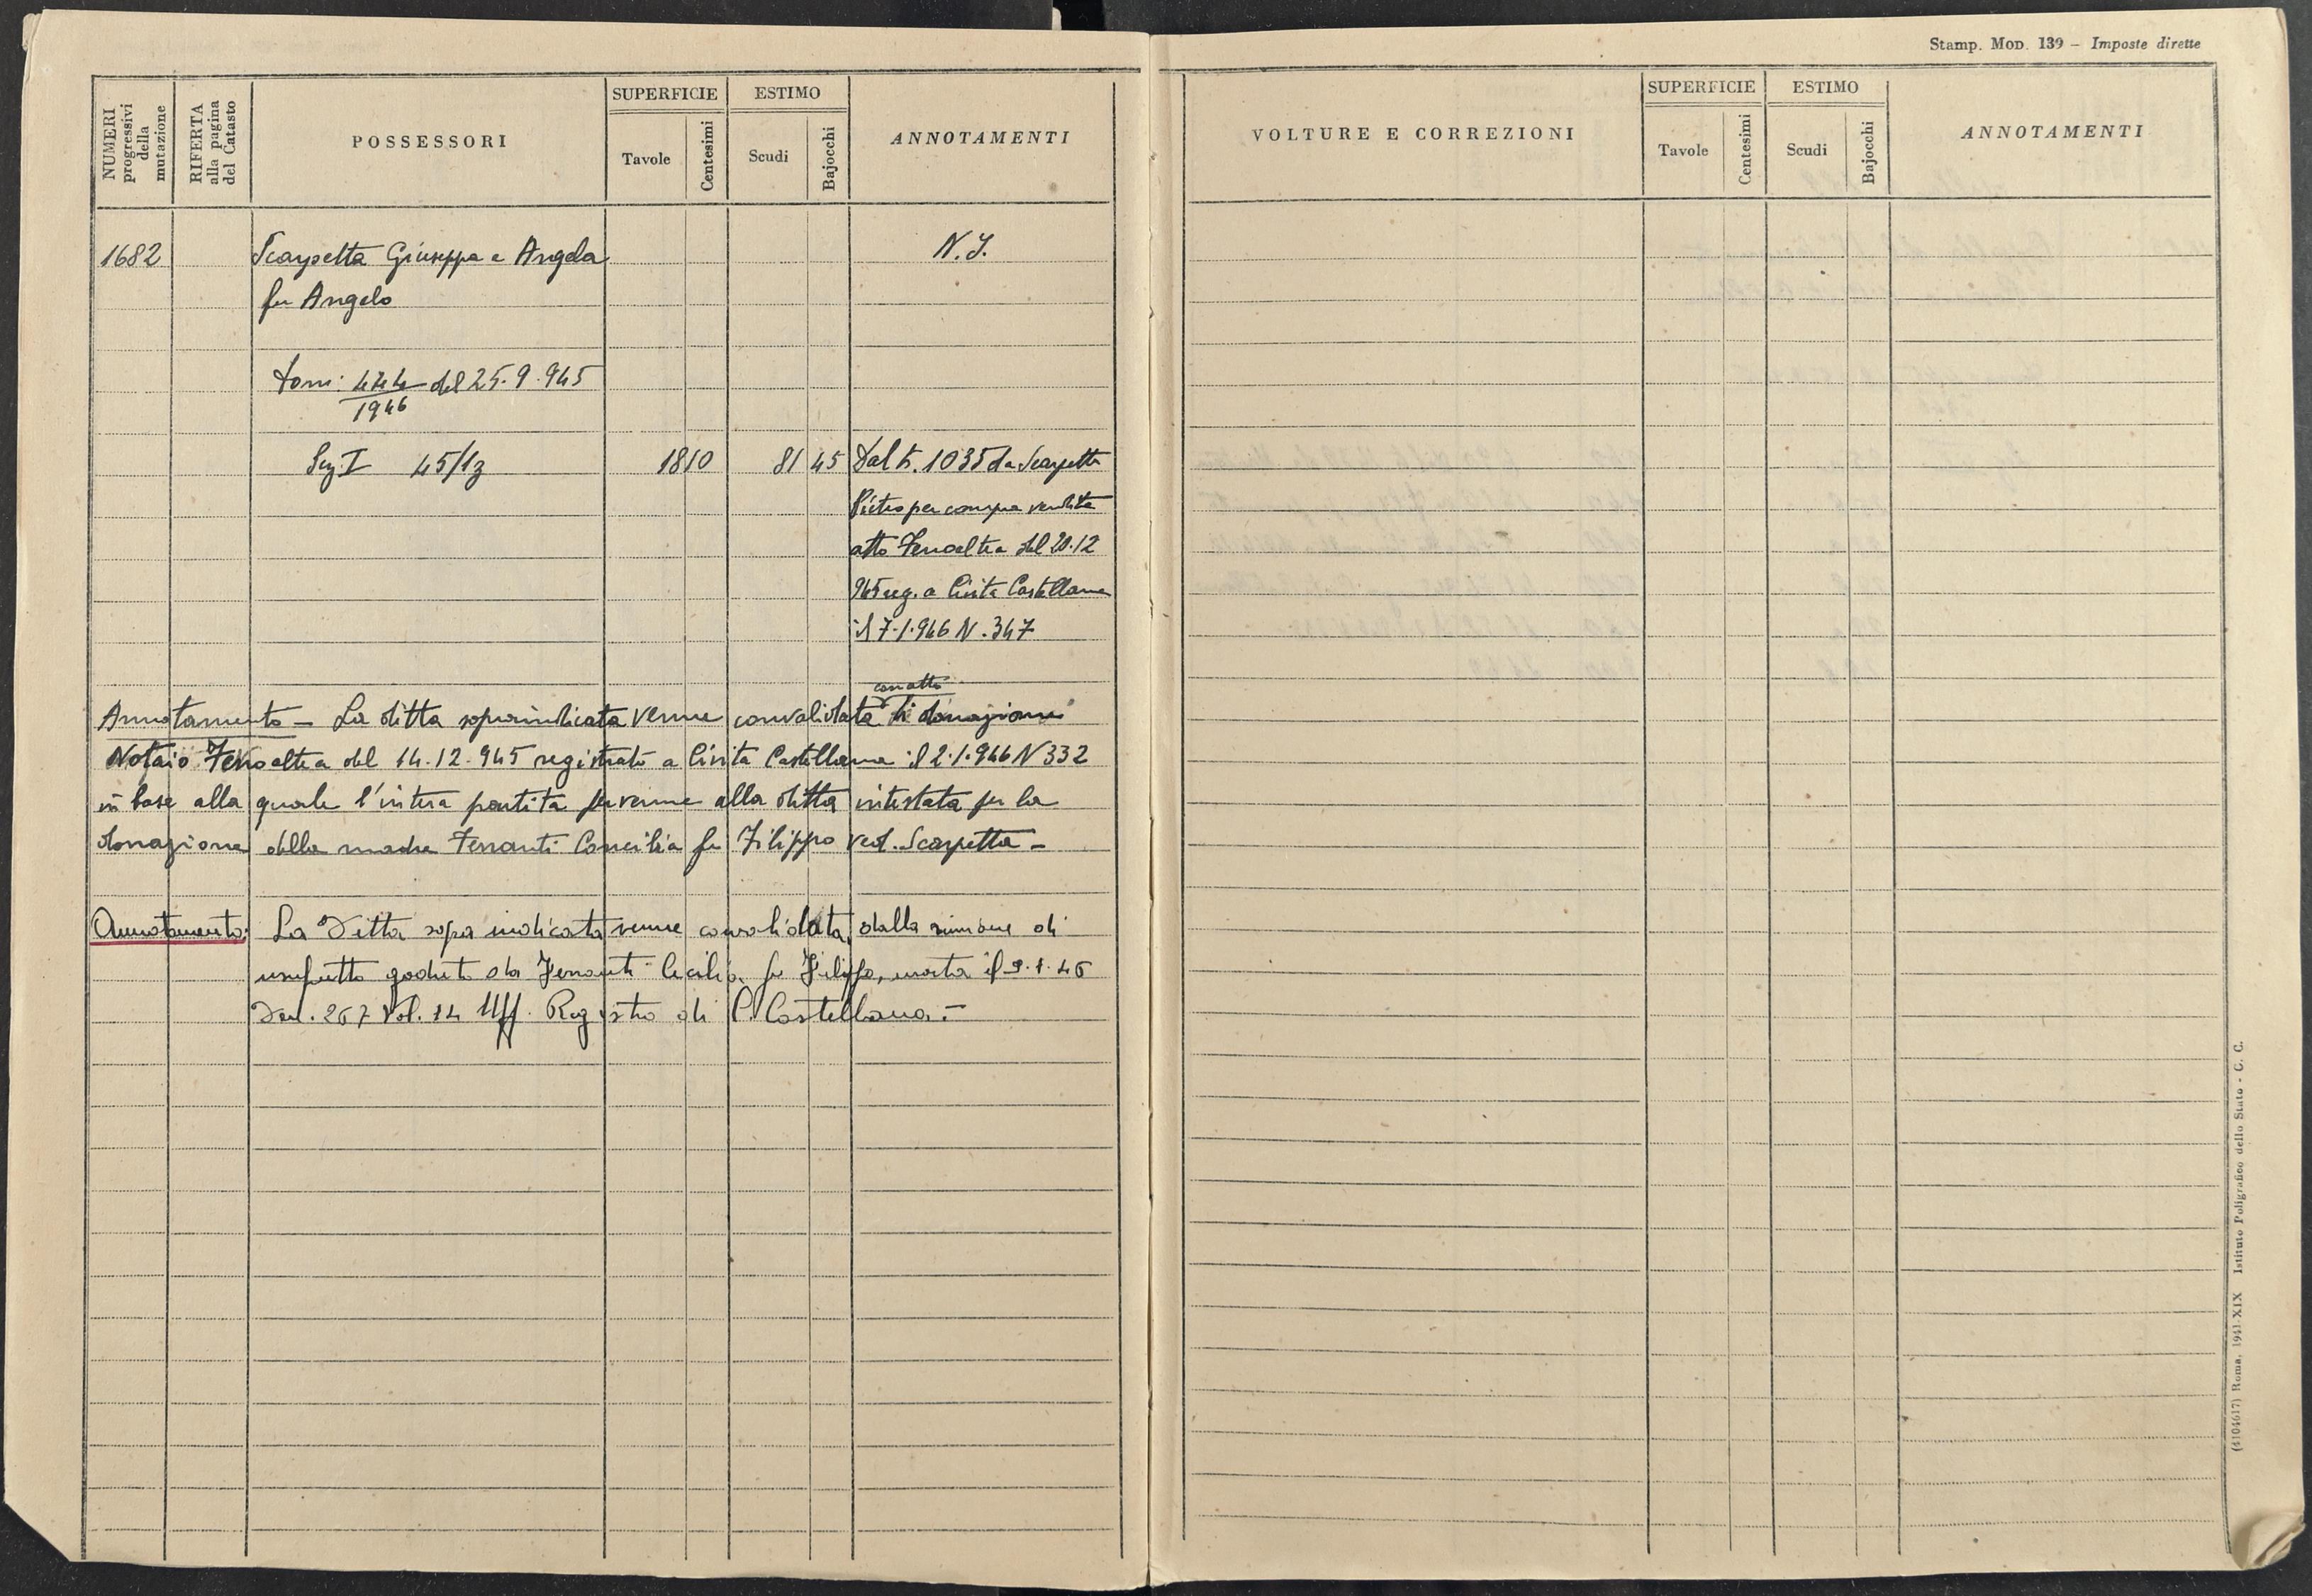 Stamp. Mod. 139 – Imposte dirette
NUMERI progressivi della mutazione
RIFERTA alla pagina del Catasto
POSSESSORI
SUPERFICIE
Tavole
Centesimi
ESTIMO
Scudi
Bajocchi
ANNOTAMENTI
VOLTURE E CORREZIONI
SUPERFICIE
Tavole
Centesimi
ESTIMO
Scudi
Bajocchi
ANNOTAMENTI
1682 Scarpetta Giuseppa e Angela N.I.
fu Angelo
del 25.9.945
1946
Sez I 45/13 18 10 81 45 Dal n. 1035 da Scarpetta
Pietro per compra vendita
atto Ferroaltea del 20.12
945 reg. a Civita Castellana
il 7.1.946 N. 347
con atto
Annotamento – La ditta sopraindicata venne convalidata di donazione
Notaio Ferroaltea del 14.12.945 registrato a Civita Castellana il 2.1.946 N 332
in base alla quale l'intera partita pervenne alla ditta intestata per la
donazione della madre Ferranti Concilia fu Filippo ved. Scarpetta –
Annotamento: La Ditta sopra indicata venne consolidata, dalla riunione di
usufrutto goduto da Ferranti Cecilia fu Filippo, morta il 9.1.46
Den. 267 Vol. 14 Uff. Registro di C. Castellana. –
(4104617) Roma, 1941-XIX Istituto Poligrafico dello Stato - C. C.